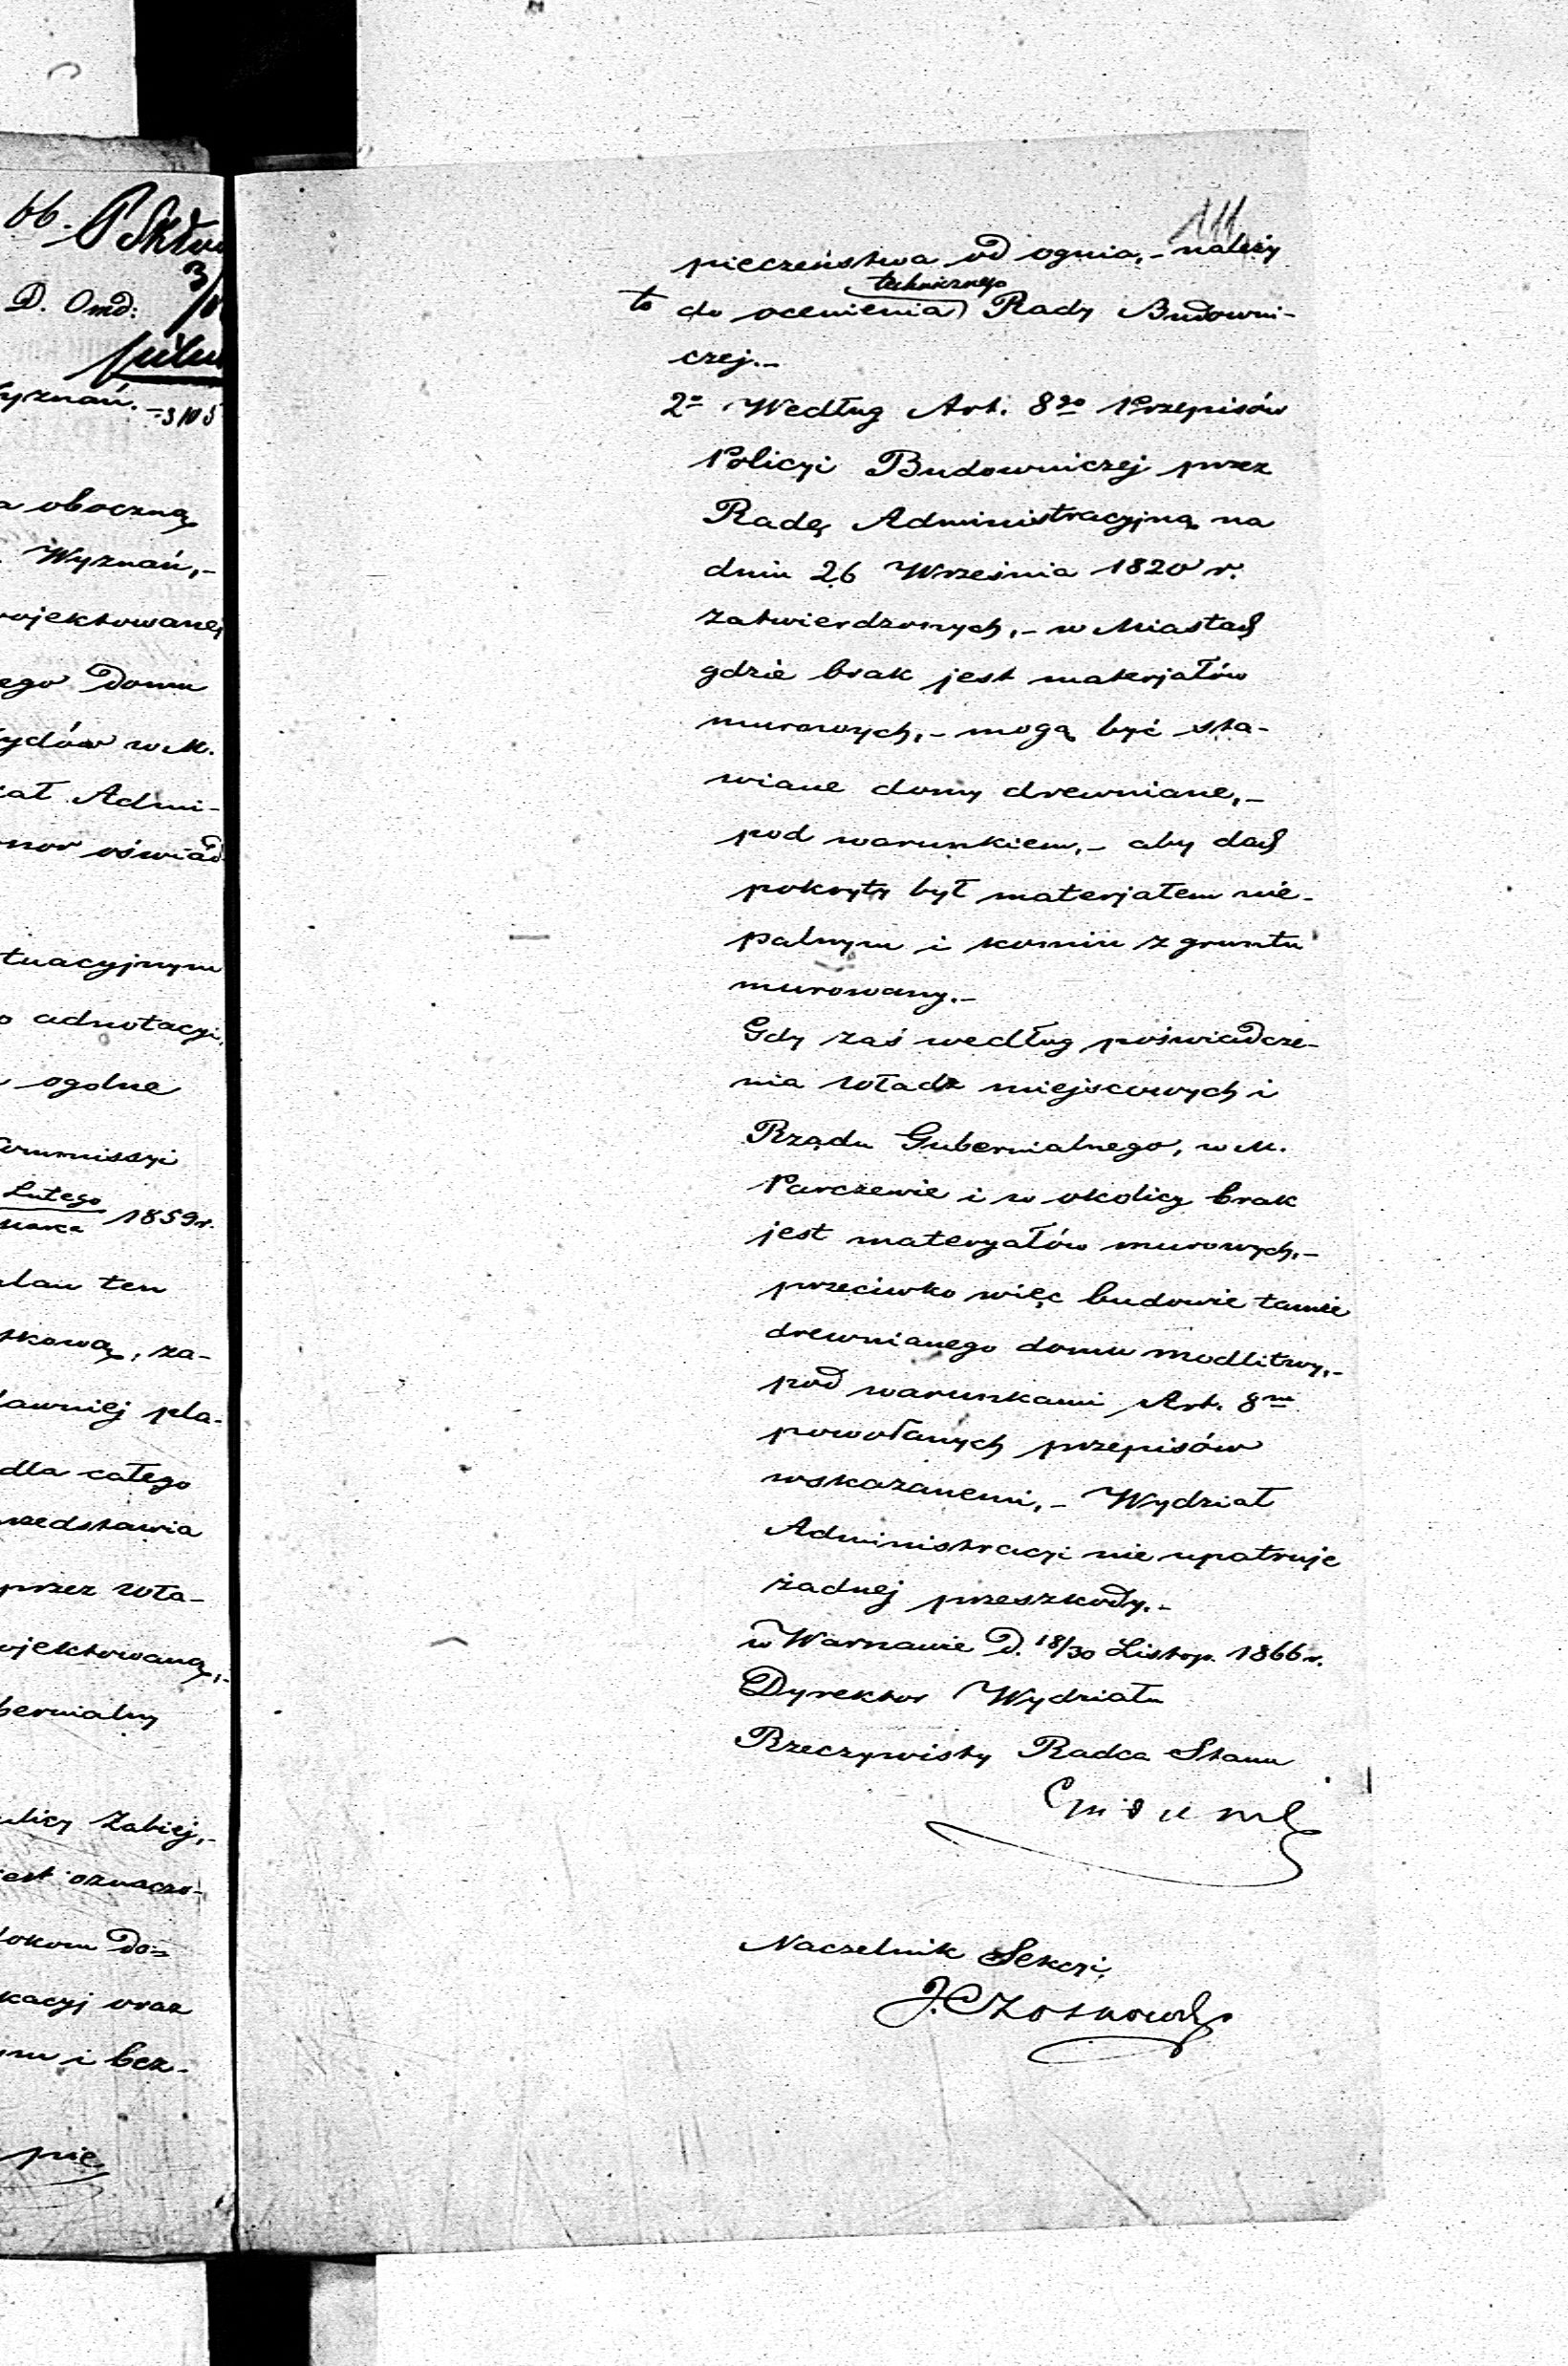 bb.
D. Omd:
yznań.
a oboczną
Wyznań,-
rojektowanej
ego Domu
ydów w M.
iał Admi-
nor oświad
tuacyjnym
o adnotacyi
ogolne
ommissyi
Lutego
Marca 1859 r.
plan ten
skową, za-
dawniej pla-
dla całego
rzedstawia
przez wła-
ojektowaną,-
bernialny
ulicy Żabiej,-
jest oznaczo-
dokom Do=
kacyj oraz
ym i bez-
pie
111
pieczeństwa od ognia,- należy
technicznego
to do ocenienia Rady Budowni-
czej.-
2º Według Art. 8go Przepisów
Policyi Budowniczej przez
Radę Administracyjną na
dniu 26 Września 1820 r.
zatwierdzonych,- w Miastach
gdzie brak jest materjałów
murowych,- mogą być sta-
wiane domy drewniane,-
pod warunkiem,- aby dach
pokryty był materjałem nie-
palnym i komin z gruntu
murowany.-
Gdy zaś według poświadcze-
nia władz miejscowych i
Rządu Gubernialnego, w M.
Parczewie i w okolicy brak
jest materyałów murowych,-
przeciwko więc budowie tamże
drewnianego domu modlitwy,-
pod warunkami Art. 8m
powołanych przepisów
wskazanemi,- Wydział
Administracyi nie upatruje
żadnej przeszkody.-
w Warszawie D. 18/30 Listop. 1866 r.
Dyrektor Wydziału
Rzeczywisty Radca Stanu
Naczelnik Sekcyi,